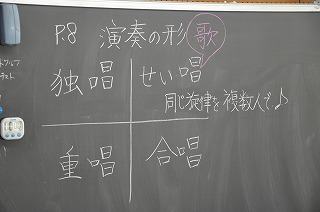 P.8 演奏の形 歌
独唱 せい唱
同じ旋律を複数人で♪
重唱 合唱